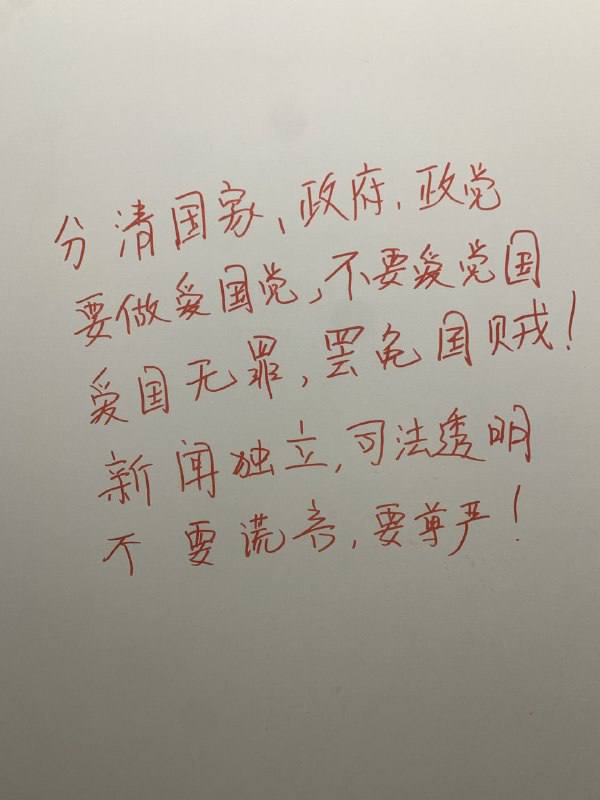 分清国家、政府、政党
要做爱国党,不要爱党国
爱国无罪,罢免国贼!
新闻独立,司法透明
不要谎言,要尊严!